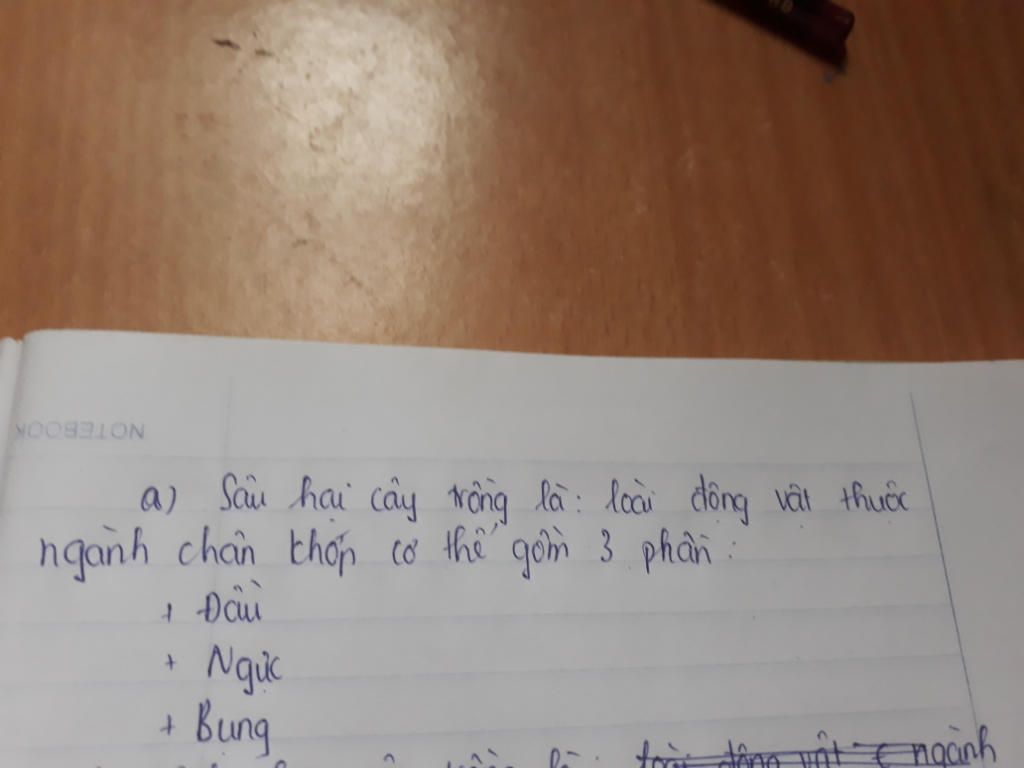 NOTEBOOK
a) Sâu hại cây trồng là: loài động vật thuộc
ngành chân khớp cơ thể gồm 3 phần:
+ Đầu
+ Ngực
+ Bụng
là: loài động vật ngành